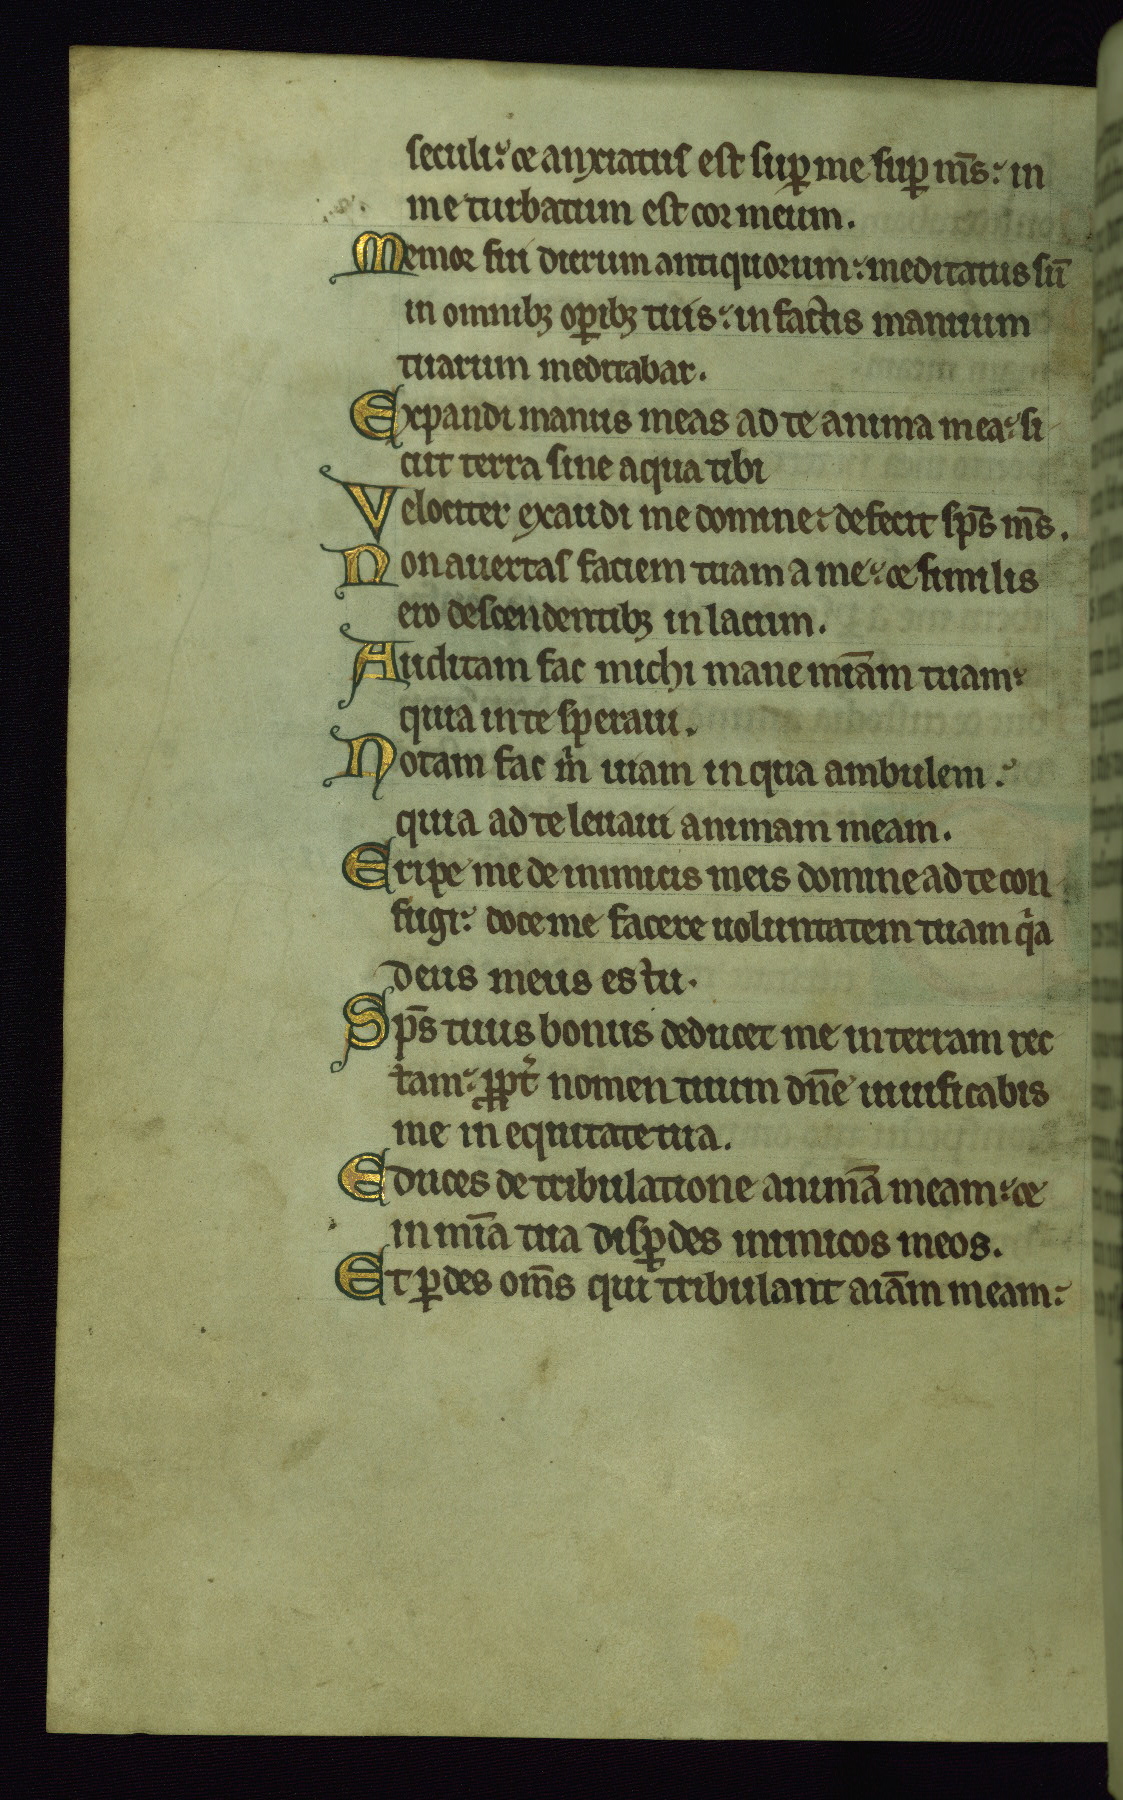 seculi: ⁊ anxiatus est sup me sup m̄s: in
me turbatum est cor meum.
Memor fui dierum antiquorum: meditatus sū
in omnibꝫ oꝑibꝫ tuis: in factis manuum
tuarum meditabar.
Expandi manus meas ad te anima mea: si
cut terra sine aqua tibi
Velociter exaudi me domine: defecit sp̄s m̄s.
Non auertas faciem tuam a me: ⁊ similis
ero descendentibꝫ in lacum.
Auditam fac michi mane mīam tuam:
quia in te speraui.
Notam fac m̍ uiam in qua ambulem:
quia ad te leuaui animam meam.
Eripe me de inimicis meis domine ad te con
fugi: doce me facere uoluntatem tuam qͥa
deus meus es tu.
Sp̄s tuus bonus deducet me in terram rec
tam: ꝓpt̾ nomen tuum dn̄e uiuificabis
me in equitate tua.
Educes de tribulatione animā meam: ⁊
in mīa tua disꝑdes inimicos meos.
Et ꝑdes om̄s qui tribulant aīam meam: